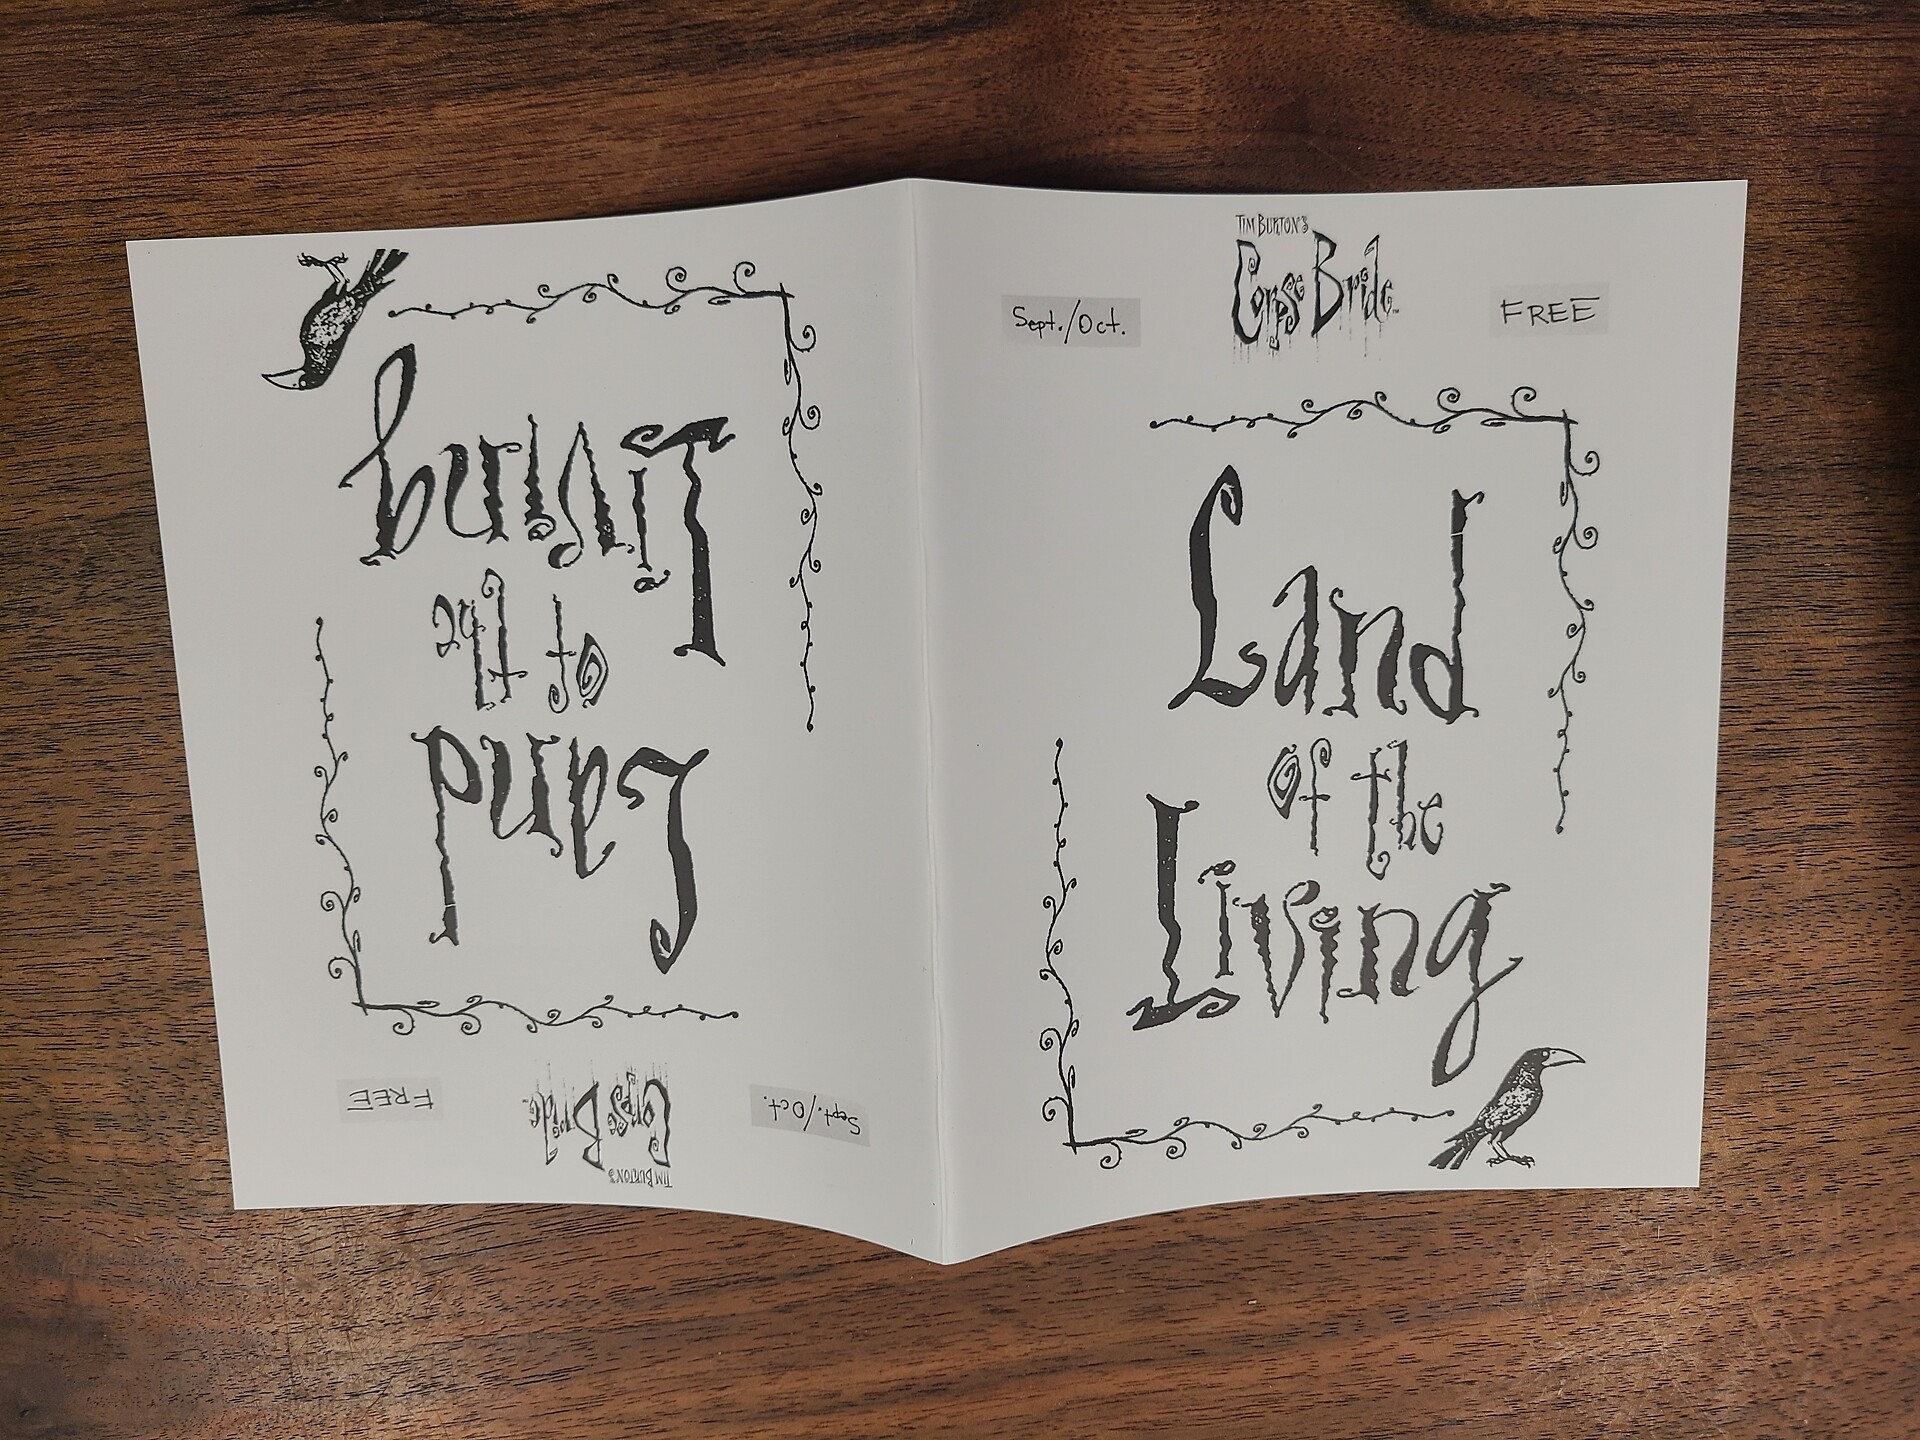 TIM BURTON'S
Corpse Bride
Sept./Oct.
FREE
Land
of the
Living
TIM BURTON'S
Corpse Bride
Sept./Oct.
FREE
Land
of the
Living